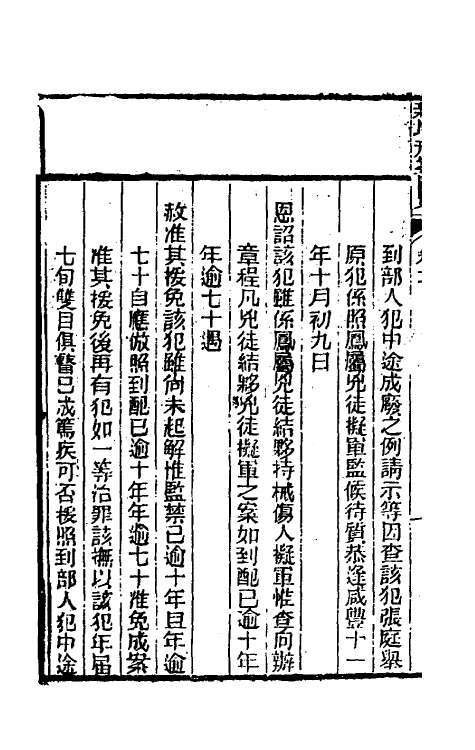 到部人犯中途成廢之例請示等因查該犯張庭舉
原犯係照鳳屬兇徒擬軍監候待質恭逢咸豐十一
年十月初九日
恩詔該犯雖係鳳屬兇徒結夥持械傷人擬軍惟查向辦
章程凡兇徒結夥兇徒擬軍之案如到配已逾十年
年逾七十遇
赦准其援免該犯雖尙未起解惟監禁已逾十年且年逾
七十自應倣照到配已逾十年年逾七十准免成案
准其援免後再有犯加一等治罪該撫以該犯年届
七旬雙目俱瞽已成篤疾可否援照到部人犯中途